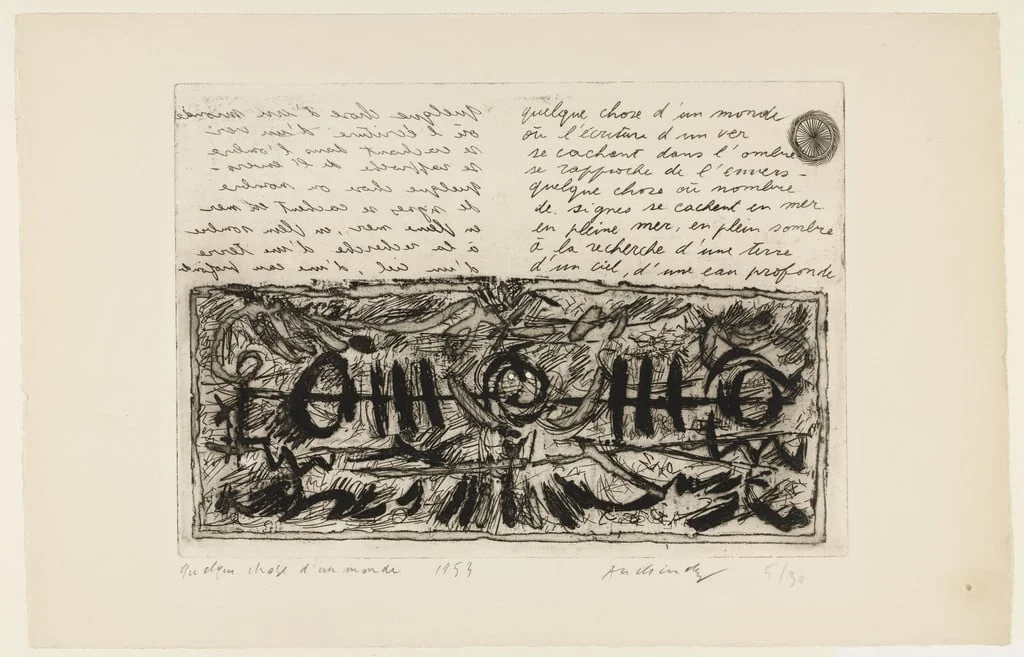 quelque chose d'un monde
où l'écriture d'un ver
se cachant dans l'ombre
se rapproche de l'envers -
quelque chose où nombre
de signes se cachent en mer
en pleine mer, en plein sombre
à la recherche d'une terre
d'un ciel, d'une eau profonde
quelque chose d'un monde
où l'écriture d'un ver
se cachant dans l'ombre
se rapproche de l'envers -
quelque chose où nombre
de signes se cachent en mer
en pleine mer, en plein sombre
à la recherche d'une terre
d'un ciel, d'une eau profonde
Quelque chose d'un monde 1953 Alechinsky 5/30